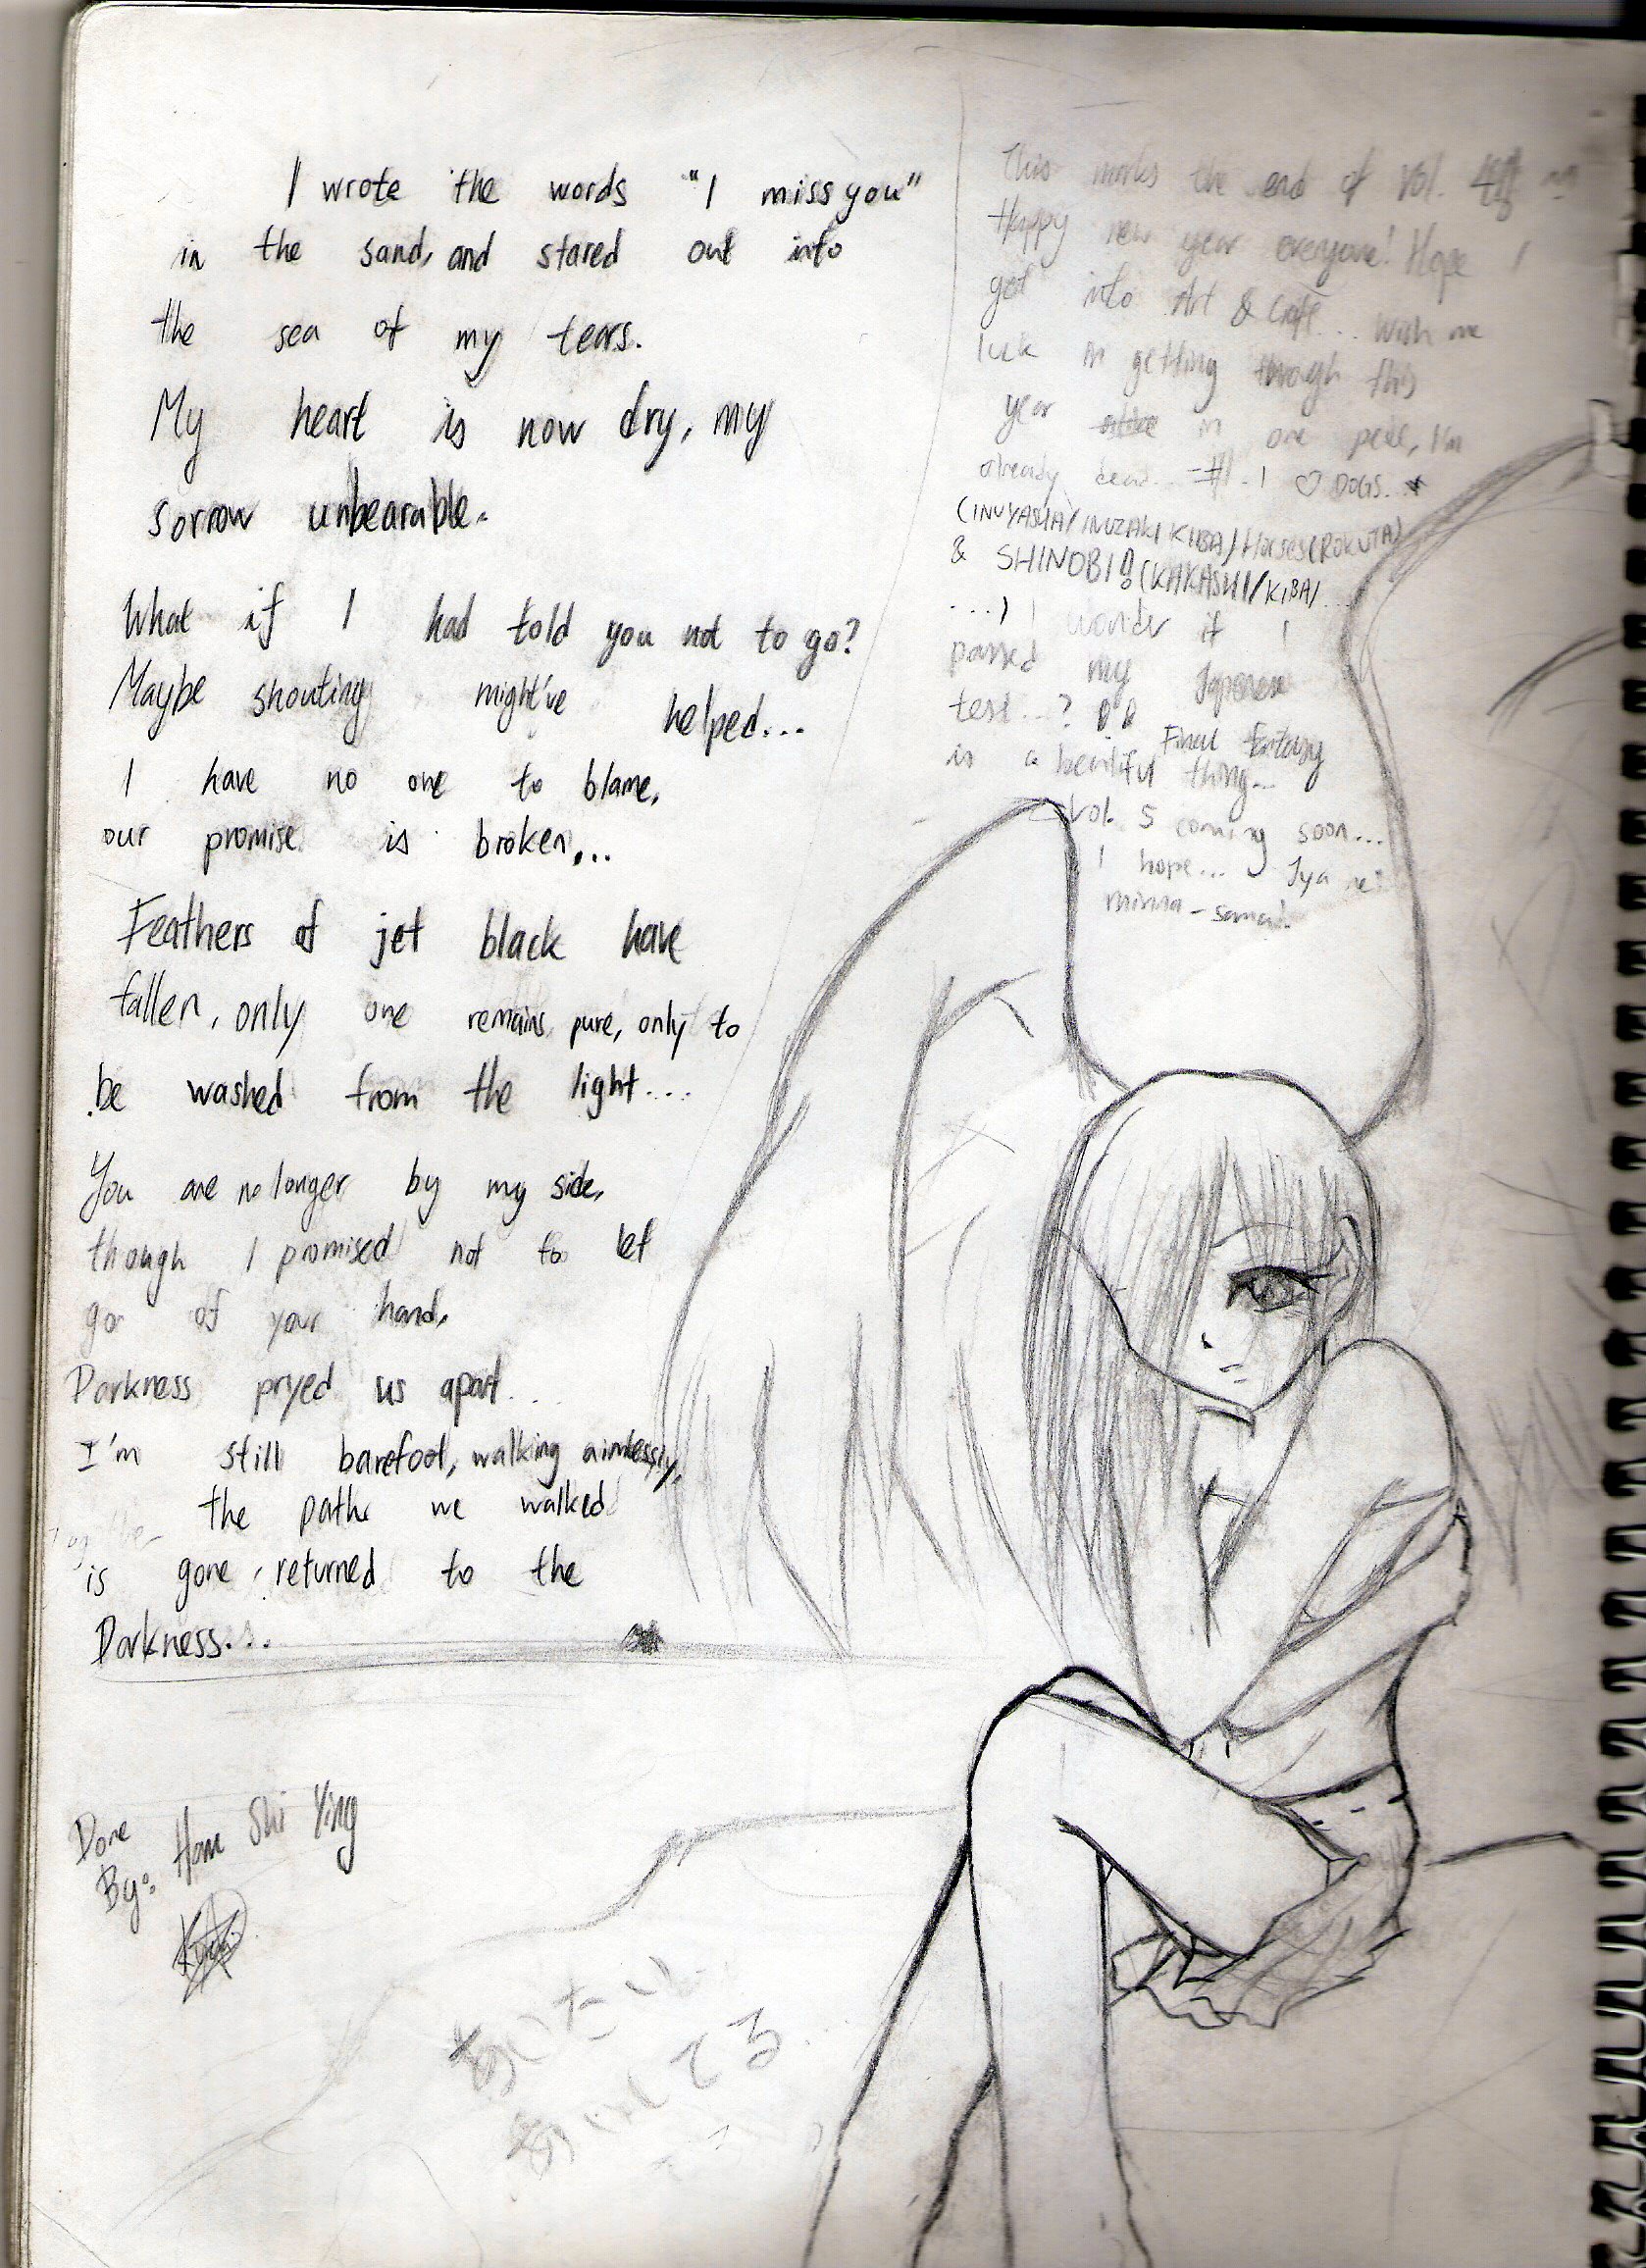 I wrote the words "I miss you"
in the sand, and stared out into
the sea of my tears.
My heart is now dry, my
sorrow unbearable.
What if I had told you not to go?
Maybe shouting might've helped...
I have no one to blame,
our promise is broken...
Feathers of jet black have
fallen, only one remains pure, only to
be washed from the light....
You are no longer by my side,
though I promised not to let
go of your hand,
Darkness pryed us apart...
I'm still barefoot, walking aimlessly,
the path we walked
is gone, returned to the
Darkness...
Done
By: Ham Shi Ying
This marks the end of Vol. 4
Happy new year everyone! Hope I
get into Art & Craft... Wish me
luck in getting through this
year in one piece, I'm
already dead... I ♡ DOGS.
(INUYASHA/INUZAKI KIBA)/Horses(ROKUTA)
& SHINOBI!(KAKASHI/KIBA/...
...) I wonder if I
passed my Japanese
test...?
Final Fantasy
is a beautiful thing...
Vol. 5 coming soon...
I hope... Jya ne!
minna-sama!
あいたい
あいしてる...